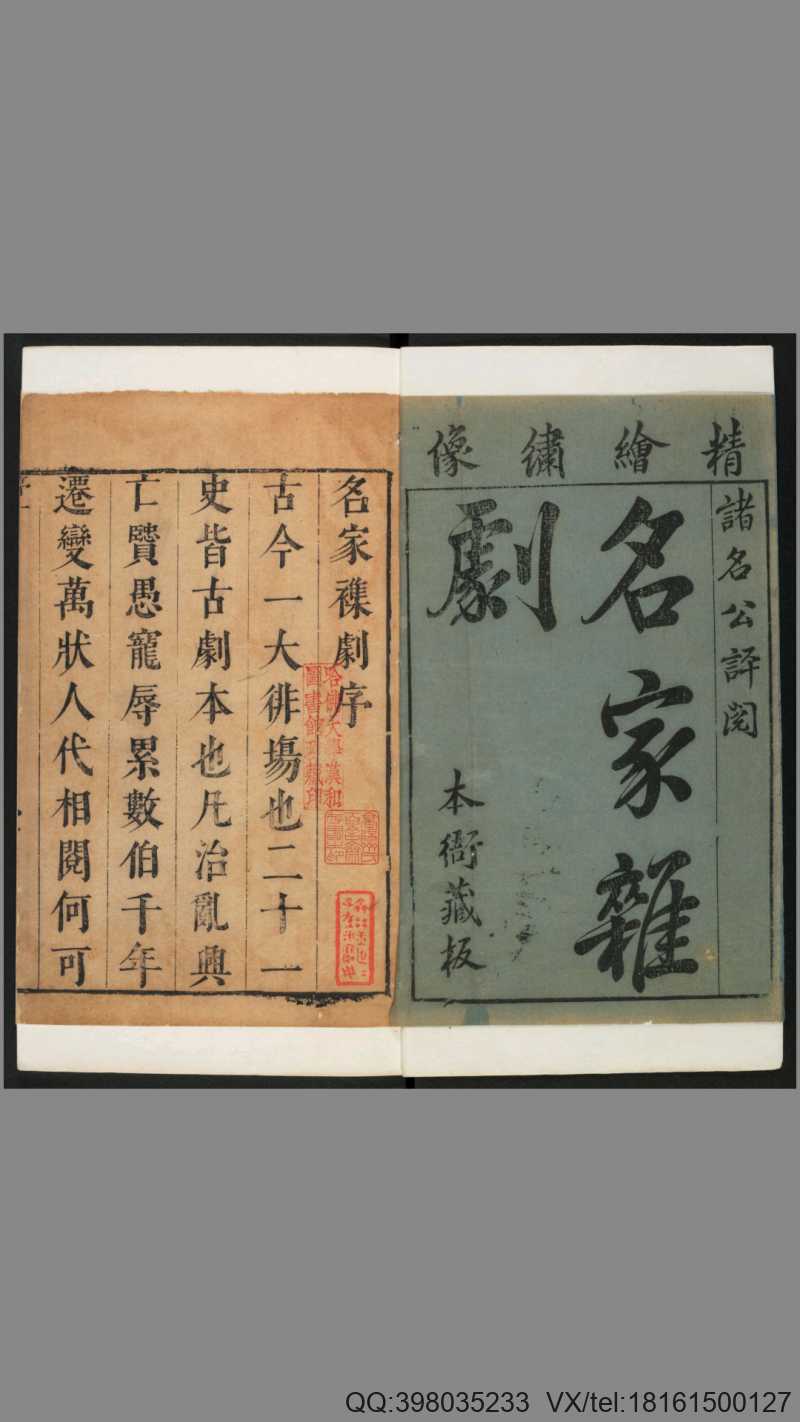 精繪繡像
諸名公評閱
名家雜
劇
本衙藏板
名家襍劇序
古今一大徘塲也二十一
史皆古劇本也凡治亂興
亡贒愚寵辱累數伯千年
遷變萬狀人代相閱何可
哈佛大學漢和
圖書館珍藏印
QQ:398035233 VX/tel:18161500127